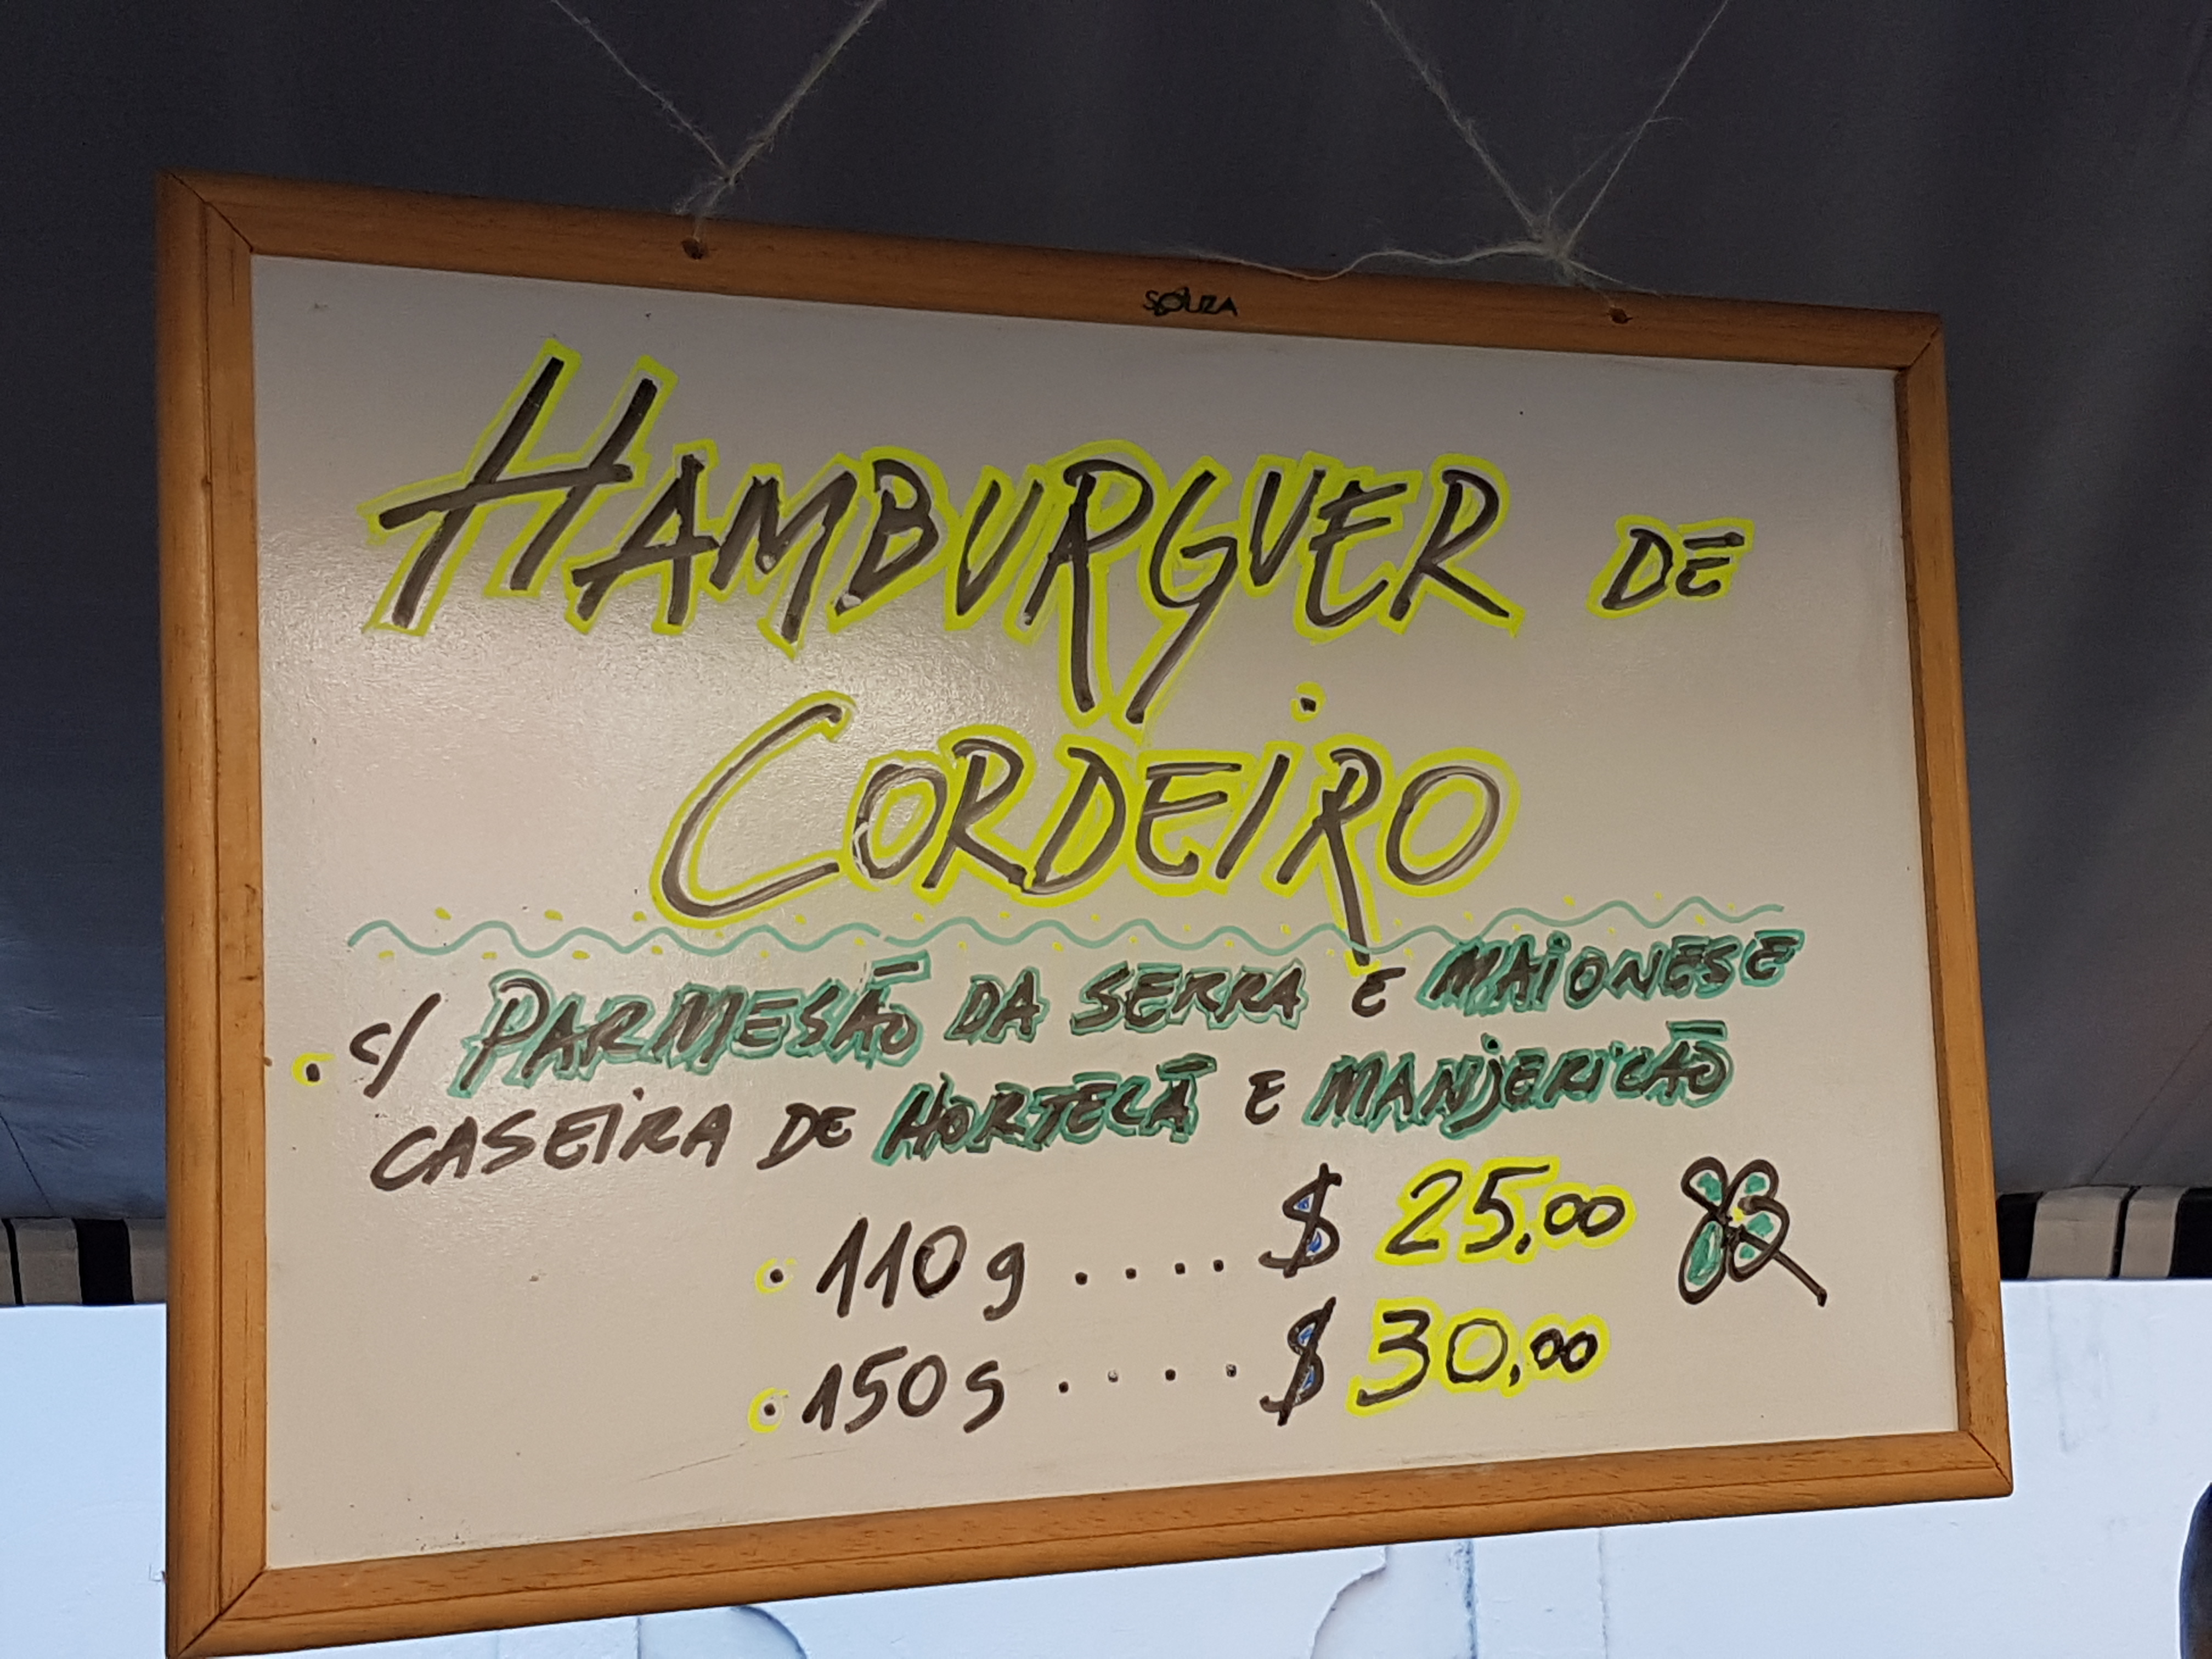 SOUZA
HAMBURGUER DE
CORDEIRO
• c/ PARMESÃO DA SERRA E MAIONESE
CASEIRA DE HORTECÃ E MANJERICÃO
• 110g .... $ 25,00
• 150g .... $ 30,00